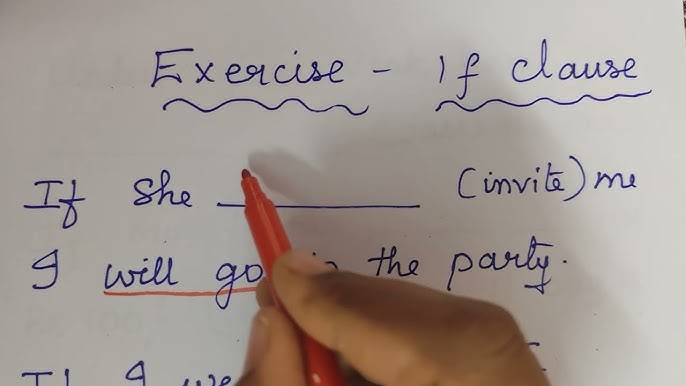 Exercise - If clause
If she ________ (invite) me
I will go the party.
If I we